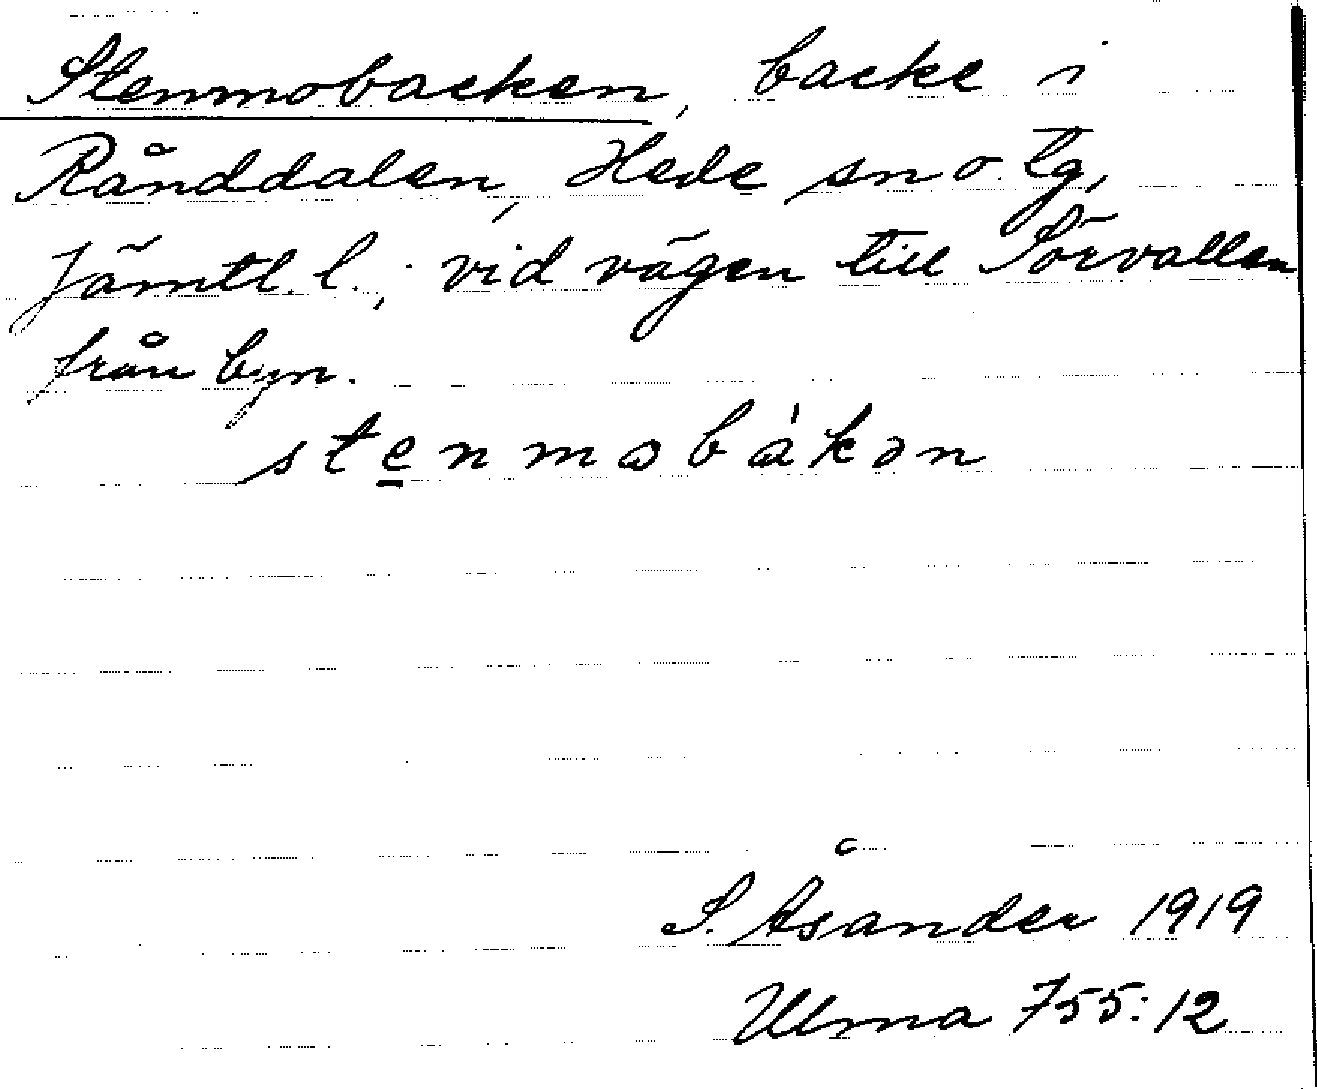 Stenmobacken, backe i
Rånddalen, Hede sn o. tg,
Jämtl. l.; vid vägen till Sörvallen
från byn.
stenmobákən
S. Åsander 1919
Ulma 755:12